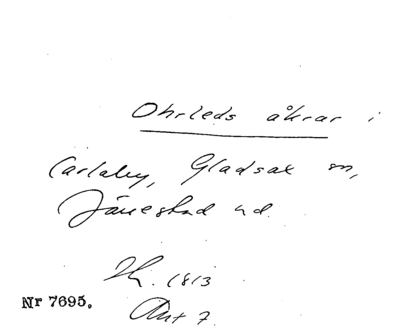 Ohrleds åkrar i
Carlaby, Gladsax sn,
Järrestad hd.
Sk. 1813
Nr 7695.
Akt 7